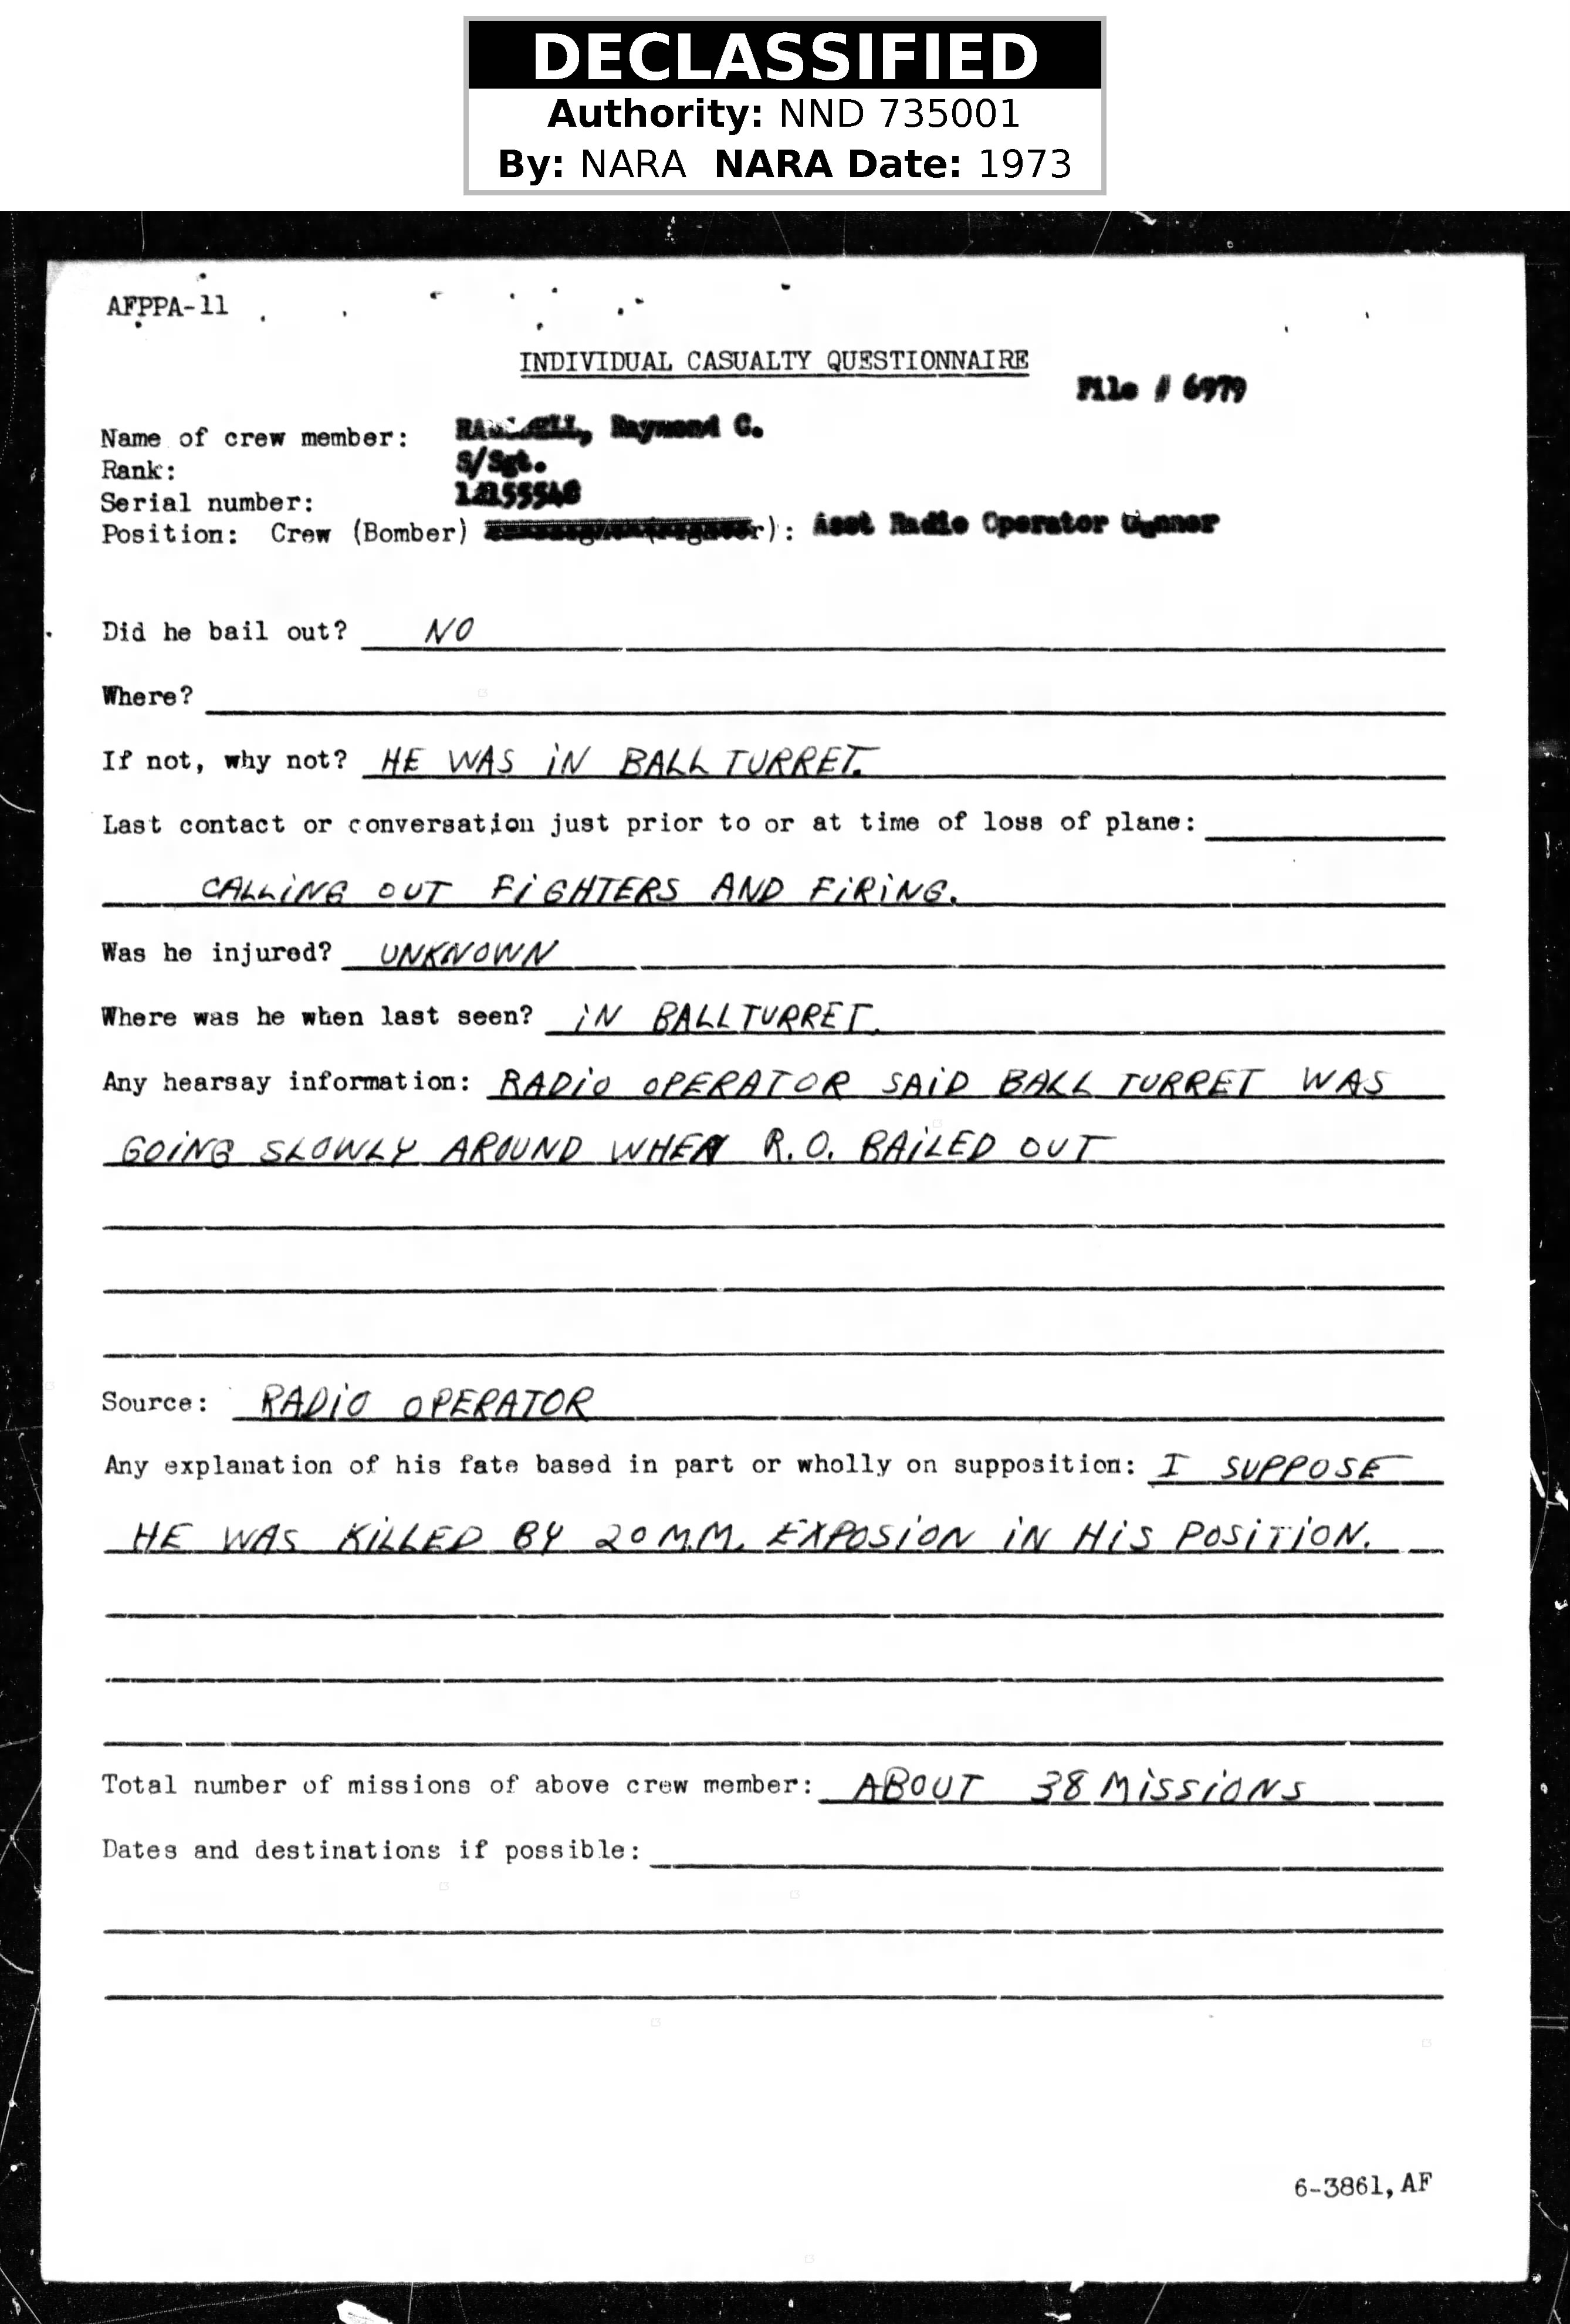 DECLASSIFIED
Authority: NND 735001
By: NARA NARA Date: 1973
AFPPA-11
INDIVIDUAL CASUALTY QUESTIONNAIRE
File # 6979
Name of crew member: Raymond C.
Rank: S/Sgt.
Serial number:
Position: Crew (Bomber) r): Asst Radio Operator Gunner
Did he bail out? NO
Where?
If not, why not? HE WAS IN BALL TURRET.
Last contact or conversation just prior to or at time of loss of plane:
CALLING OUT FIGHTERS AND FIRING.
Was he injured? UNKNOWN
Where was he when last seen? IN BALL TURRET.
Any hearsay information: RADIO OPERATOR SAID BALL TURRET WAS
GOING SLOWLY AROUND WHEN R.O. BAILED OUT
Source: RADIO OPERATOR
Any explanation of his fate based in part or wholly on supposition: I SUPPOSE
HE WAS KILLED BY 20 M.M. EXPOSION IN HIS POSITION.
Total number of missions of above crew member: ABOUT 38 MISSIONS
Dates and destinations if possible:
6-3861, AF